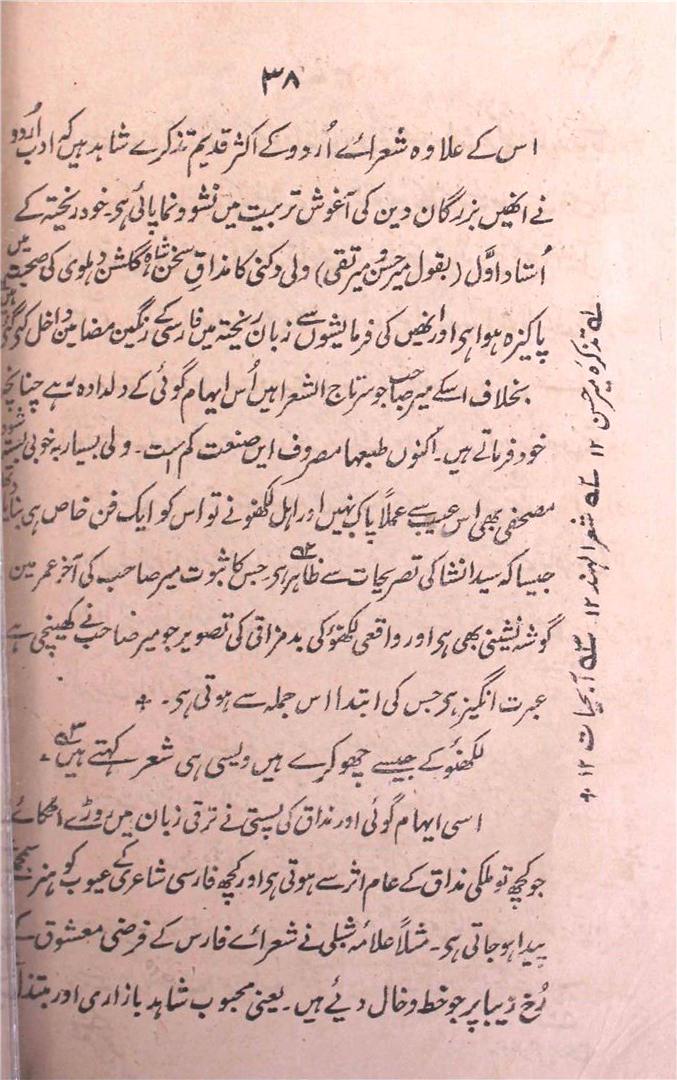 ۳۸
اس کے علاوہ شعرائے اُردو کے اکثر قدیم تذکرے شاہد ہیں کہ ادب اُردو
نے انھیں بزرگان دین کی آغوش تربیت میں نشو و نما پائی ہی۔ خود ریختہ کے
اُستاد اوّل (بقول میر حسن و میر تقی) ولی دکنی کا مذاقِ سخن شاہ گلشن دہلوی کی صحبت میں
پاکیزہ ہوا ہی اور انھیں کی فرمایشوں سے زبان ریختہ میں فارسی کے رنگین مضامین داخل کئی گئی
بخلاف اسکے میر صاحب جو سرتاج الشعرا ہیں اُس ایہام گوئی کے دلدادہ رہے چنانچہ
خود فرماتے ہیں۔ اکنوں طبعہا مصروف ایں صنعت کم است۔ ولی بسیار بہ خوبی بستہ شود
مصحفی بھی اس عیب سے عملاً پاک نہیں اور اہل لکھنؤ نے تو اس کو ایک فن خاص ہی بنا
جیسا کہ سید انشا کی تصریحات سے ظاہر ہی ۲؎ جس کا ثبوت میر صاحب کی آخر عمر مین
گوشہ نشینی بھی ہی اور واقعی لکھنؤ کی بدمزاقی کی تصویر جو میر صاحب نے کھینچی ہے
عبرت انگیز ہی جس کی ابتدا اس جملہ سے ہوتی ہی۔ +
لکھنؤ کے جیسے چھوکرے ہیں ویسی ہی شعر کہتے ہیں ۳؎۔
اسی ایہام گوئی اور مذاق کی پستی نے ترقی زبان میں روڑے اٹکائے
جو کچھ تو ملکی مذاق کے عام اثر سے ہوتی ہی اور کچھ فارسی شاعری کے عیوب کو ہنر سمجھنے
پیدا ہو جاتی ہی۔ مثلاً علامہ شبلی نے شعرائے فارس کے فرضی معشوق کے
رُخ زیبا پر جو خط و خال دیئے ہیں۔ یعنی محبوب شاہد بازاری اور مبتذل
۱؎ تذکرہ میر حسن ۱۲ ۲؎ شعر الہند ۱۲ ۳؎ آبحیات ۱۲ +